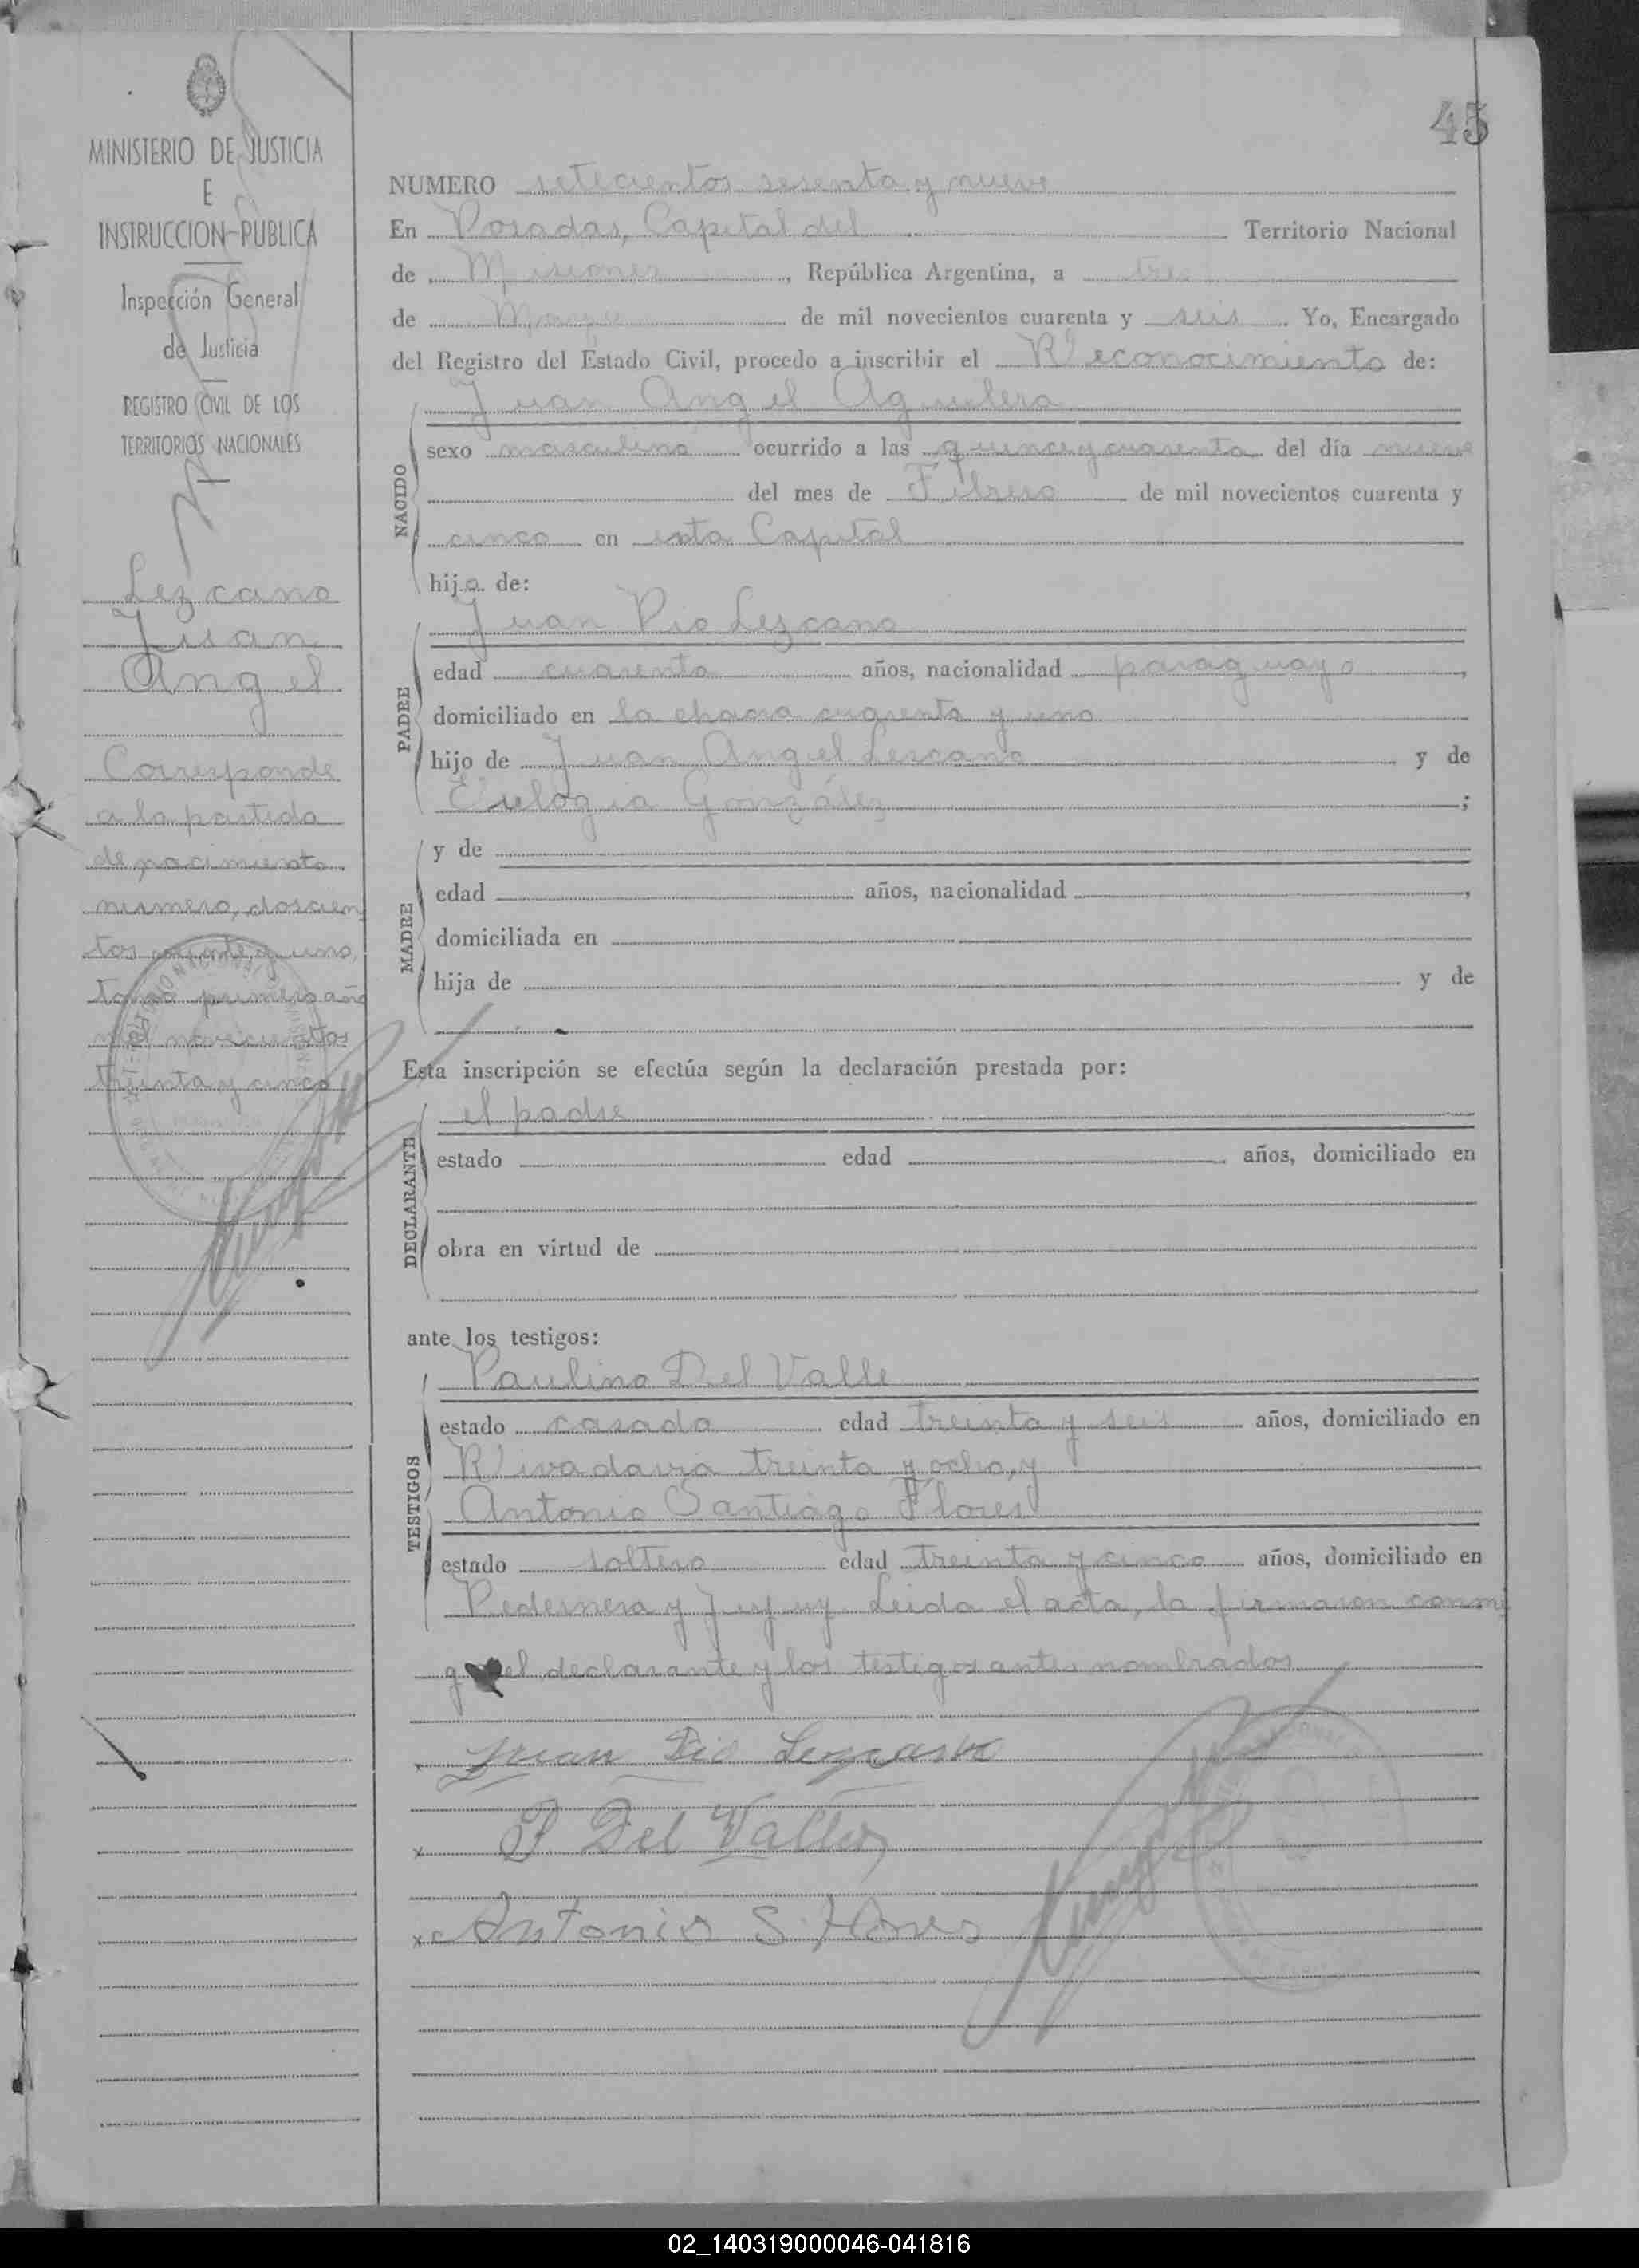 45
MINISTERIO DE JUSTICIA
E
INSTRUCCION PUBLICA
Inspección General
de Justicia
REGISTRO CIVIL DE LOS
TERRITORIOS NACIONALES
Lezcano
Juan
Angel
Corresponde
a la partida
de nacimiento
número, doscien
tos y uno,
tomo primero año
mil novecientos
y cinco
NUMERO setecientos sesenta y nueve
En Posadas, Capital del Territorio Nacional
de Misiones, República Argentina, a tres
de Mayo de mil novecientos cuarenta y seis. Yo, Encargado
del Registro del Estado Civil, procedo a inscribir el Reconocimiento de:
Juan Angel Aguilera
NACIDO
sexo masculino ocurrido a las quince y cuarenta del día nueve
del mes de Febrero de mil novecientos cuarenta y
cinco en esta Capital
hijo de:
PADRE
Juan Pio Lezcano
edad cuarenta años, nacionalidad paraguayo,
domiciliado en la chacra cuarenta y uno
hijo de Juan Angel Lezcano y de
Eulogia González;
MADRE
y de
edad años, nacionalidad,
domiciliada en
hija de y de
Esta inscripción se efectúa según la declaración prestada por:
DECLARANTE
el padre
estado edad años, domiciliado en
obra en virtud de
ante los testigos:
TESTIGOS
Paulino Del Valle
estado casado edad treinta y seis años, domiciliado en
Rivadavia treinta y ocho, y
Antonio Santiago Flores
estado soltero edad treinta y cinco años, domiciliado en
Pedernera y Jujuy Leida el acta, la firmaron conmi
go el declarante y los testigos antes nombrados
x Juan Pio Lezcano
x P. Del Valle
x Antonio S. Flores
02_140319000046-041816